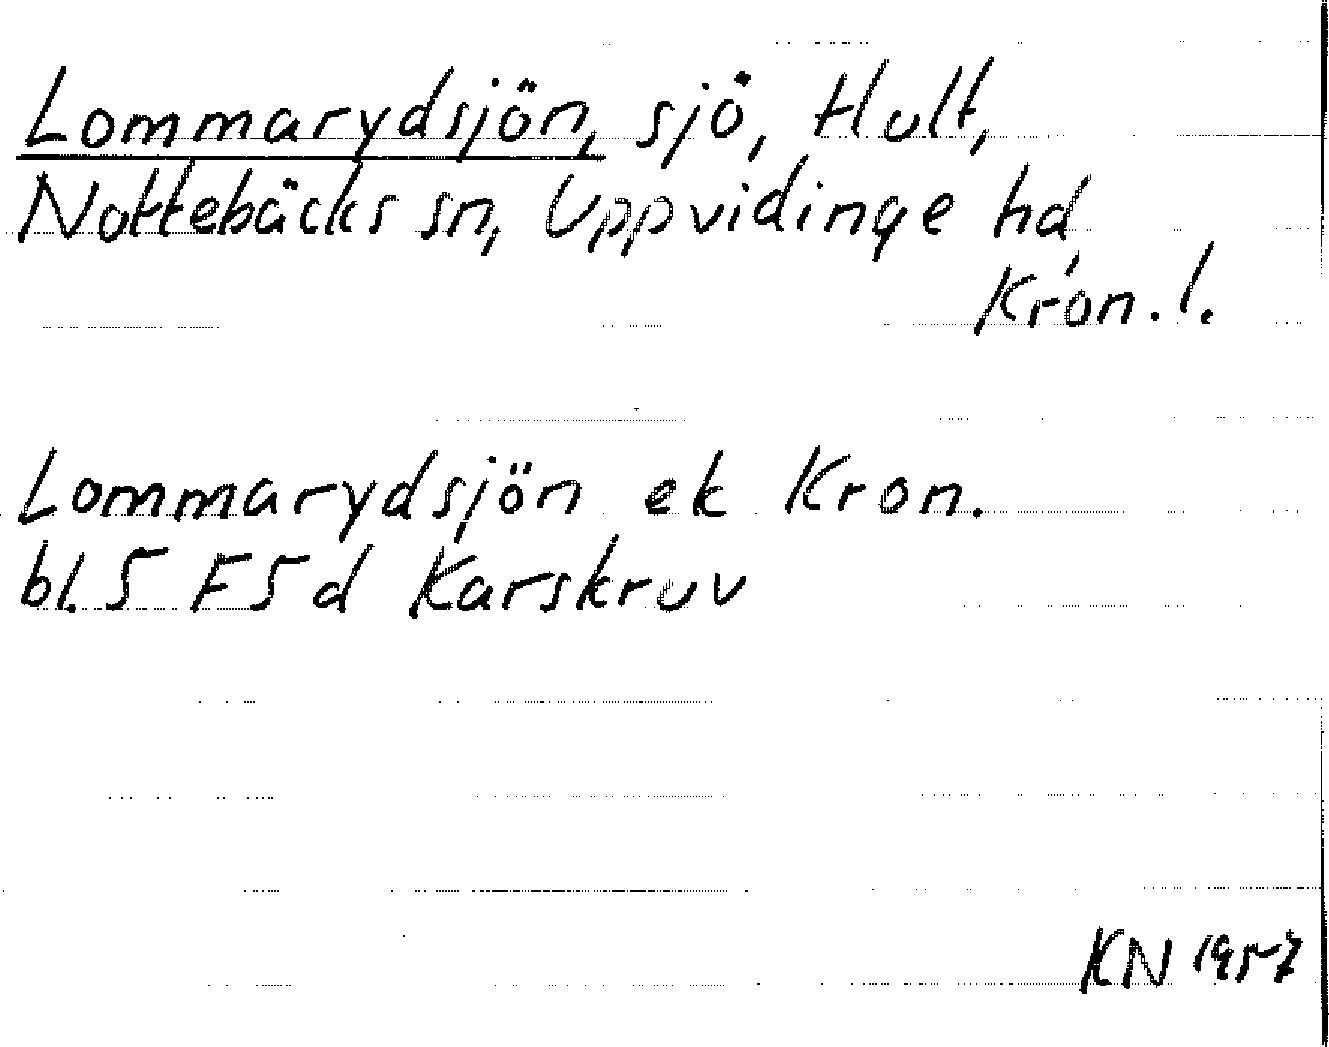 Lommarydsjön, sjö, Hult,
Nottebäcks sn, Uppvidinge hd,
Kron. l.
Lommarydsjön ek Kron.
bl. 5 F5d Karskruv
KN 1957